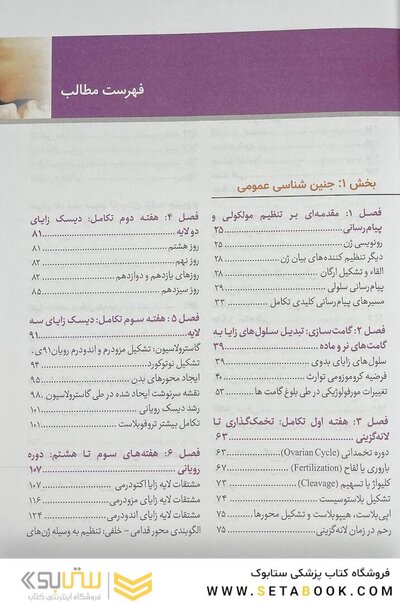 فهرست مطالب
بخش ۱: جنین شناسی عمومی
فصل ۱: مقدمه‌ای بر تنظیم مولکولی و
پیام‌رسانی ۲۵
رونویسی ژن ۲۵
دیگر تنظیم کننده‌های بیان ژن ۲۸
القاء و تشکیل ارگان ۲۸
پیام‌رسانی سلولی ۲۹
مسیرهای پیام‌رسانی کلیدی تکامل ۳۳
فصل ۲: گامت‌سازی: تبدیل سلول‌های زایا به
گامت‌های نر و ماده ۳۹
سلول‌های زایای بدوی ۳۹
فرضیه کروموزومی توارث ۴۰
تغییرات مورفولوژیکی در طی بلوغ گامت ها ۵۳
فصل ۳: هفته اول تکامل: تخمک‌گذاری تا
لانه‌گزینی ۶۳
دوره تخمدانی (Ovarian Cycle) ۶۳
باروری یا لقاح (Fertilization) ۶۷
کلیواژ یا تسهیم (Cleavage) ۷۳
تشکیل بلاستوسیست ۷۴
اپی‌بلاست، هیپوبلاست و تشکیل محورها ۷۵
رحم در زمان لانه‌گزینی ۷۵
فصل ۴: هفته دوم تکامل: دیسک زایای
دولایه ۸۱
روز هشتم ۸۱
روز نهم ۸۲
روزهای یازدهم و دوازدهم ۸۲
روز سیزدهم ۸۵
فصل ۵: هفته سوم تکامل: دیسک زایای سه
لایه ۹۱
گاسترولاسیون: تشکیل مزودرم و اندودرم رویان ۹۱
تشکیل نوتوکورد ۹۴
ایجاد محورهای بدن ۹۵
نقشه سرنوشت ایجاد شده در طی گاسترولاسیون ۹۸
رشد دیسک رویانی ۱۰۱
تکامل بیشتر تروفوبلاست ۱۰۱
فصل ۶: هفته‌های سوم تا هشتم: دوره
رویانی ۱۰۷
مشتقات لایه زایا اکتودرمی ۱۰۷
مشتقات لایه زایای مزودرمی ۱۱۶
مشتقات لایه زایای اندودرمی ۱۲۴
الگوبندی محور قدامی - خلفی: تنظیم به وسیله ژن‌های
فروشگاه کتاب پزشکی ستابوک
WWW.SETABOOK.COM
ستابوک
فروشگاه اینترنتی کتاب